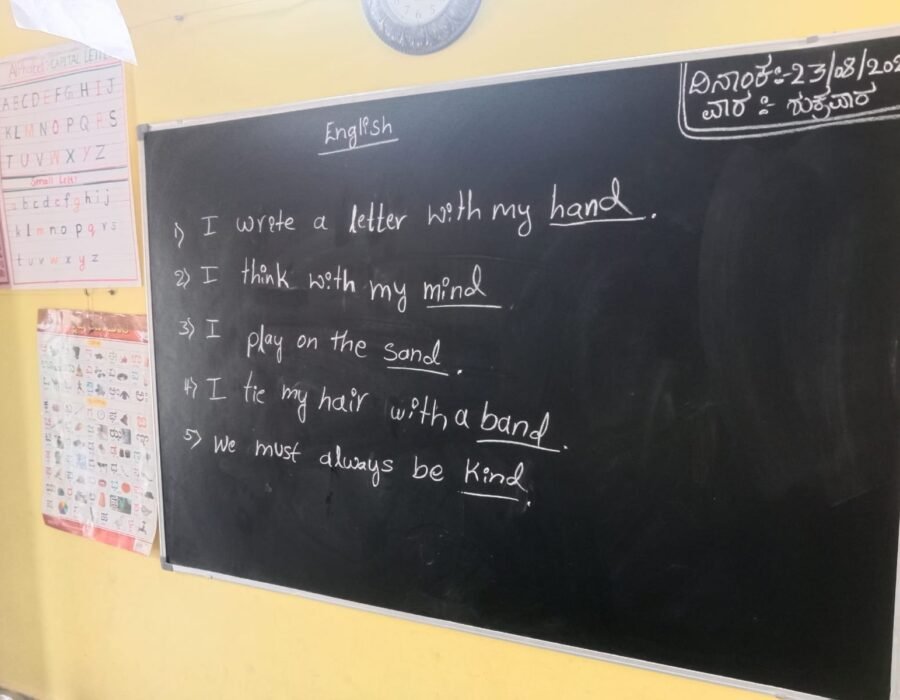 Alphabet CAPITAL LETTE
A B C D E F G H I J
K L M N O P Q R S
T U V W X Y Z
Small Letter
a b c d e f g h i j
k l m n o p q r s
t u v w x y z
7 6 5
English
ದಿನಾಂಕ:-23/08/202
ವಾರ :- ಶುಕ್ರವಾರ
1) I write a letter with my hand.
2) I think with my mind
3) I play on the sand.
4) I tie my hair with a band.
5) We must always be Kind.